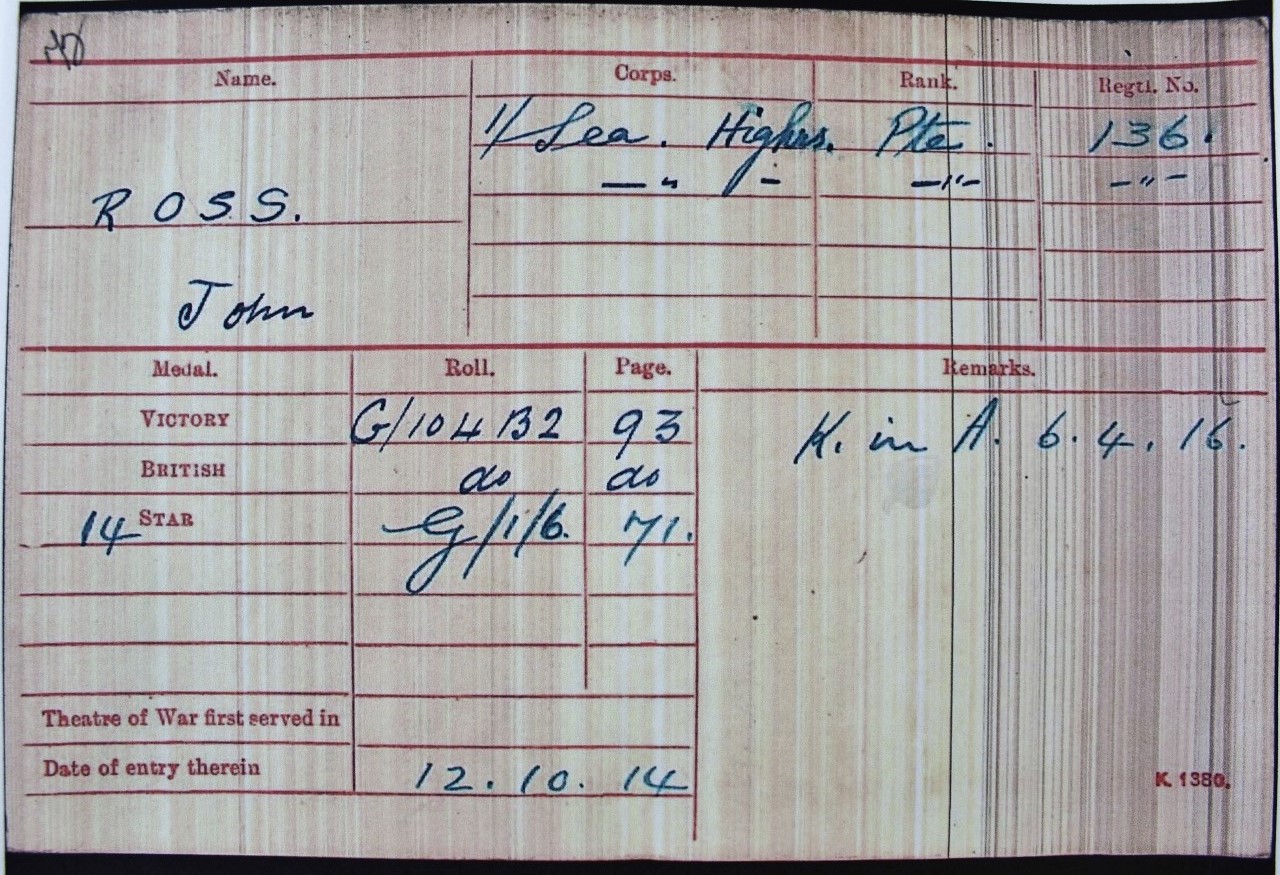 Name. Corps. Rank. Regtl. No.
1/ Sea. Highrs. Pte. 136.
— " — —"— —"—
ROSS.
John
Medal. Roll. Page. Remarks.
VICTORY G/104 B2 93 K. in A. 6.4.16.
BRITISH do do
14 STAR G/1/6. 71.
Theatre of War first served in
Date of entry therein 12.10.14
K. 1380.